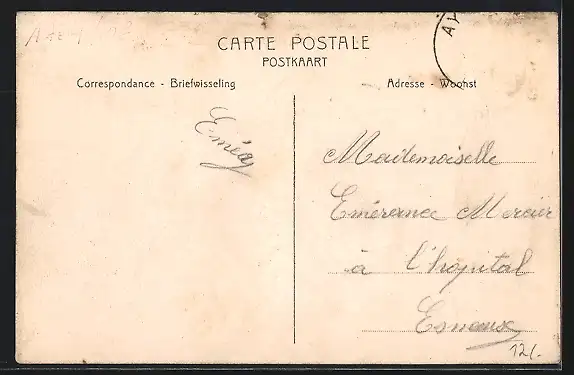 CARTE POSTALE
POSTKAART
AY
Correspondance - Briefwisseling
Adresse - Woonst
Mademoiselle
Emérence Mercier
à l'hôpital
12/-